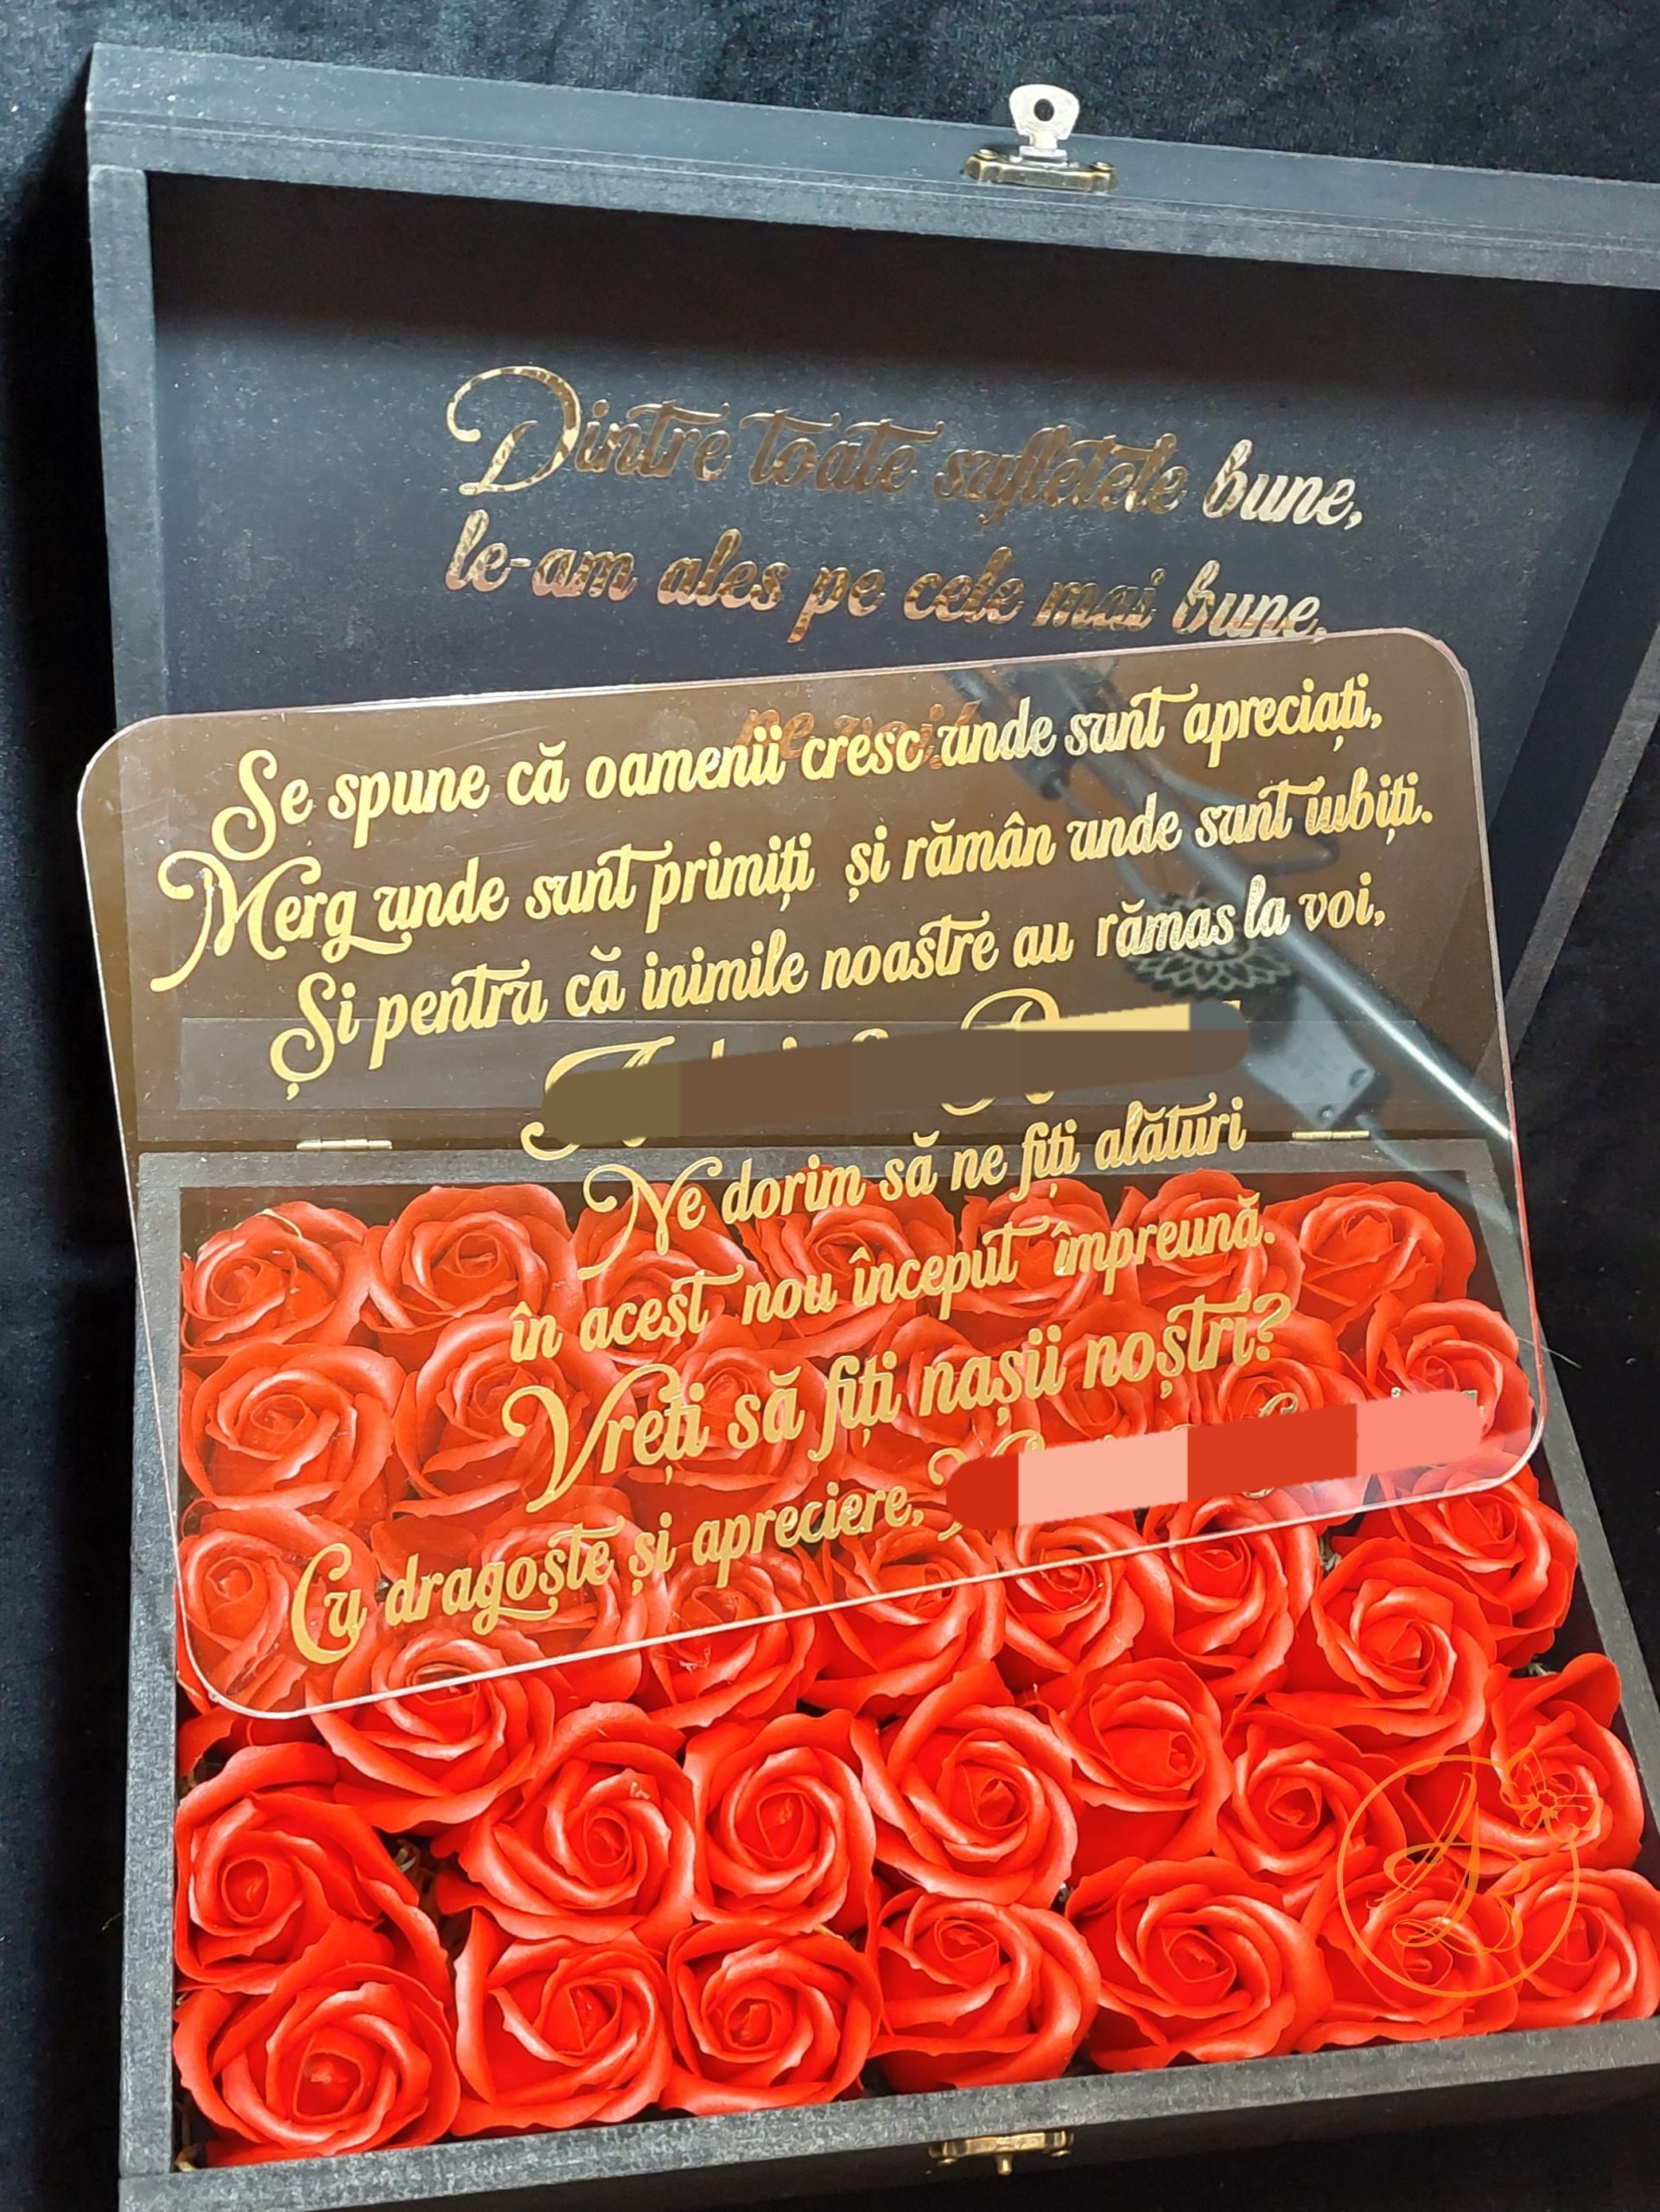 Dintre toate sufletele bune,
le-am ales pe cele mai bune,
pe voi!
Se spune că oamenii cresc unde sunt apreciați,
Merg unde sunt primiți și rămân unde sunt iubiți.
Și pentru că inimile noastre au rămas la voi,
Ne dorim să ne fiți alături
în acest nou început împreună.
Vreți să fiți nașii noștri?
Cu dragoște și apreciere,
AB